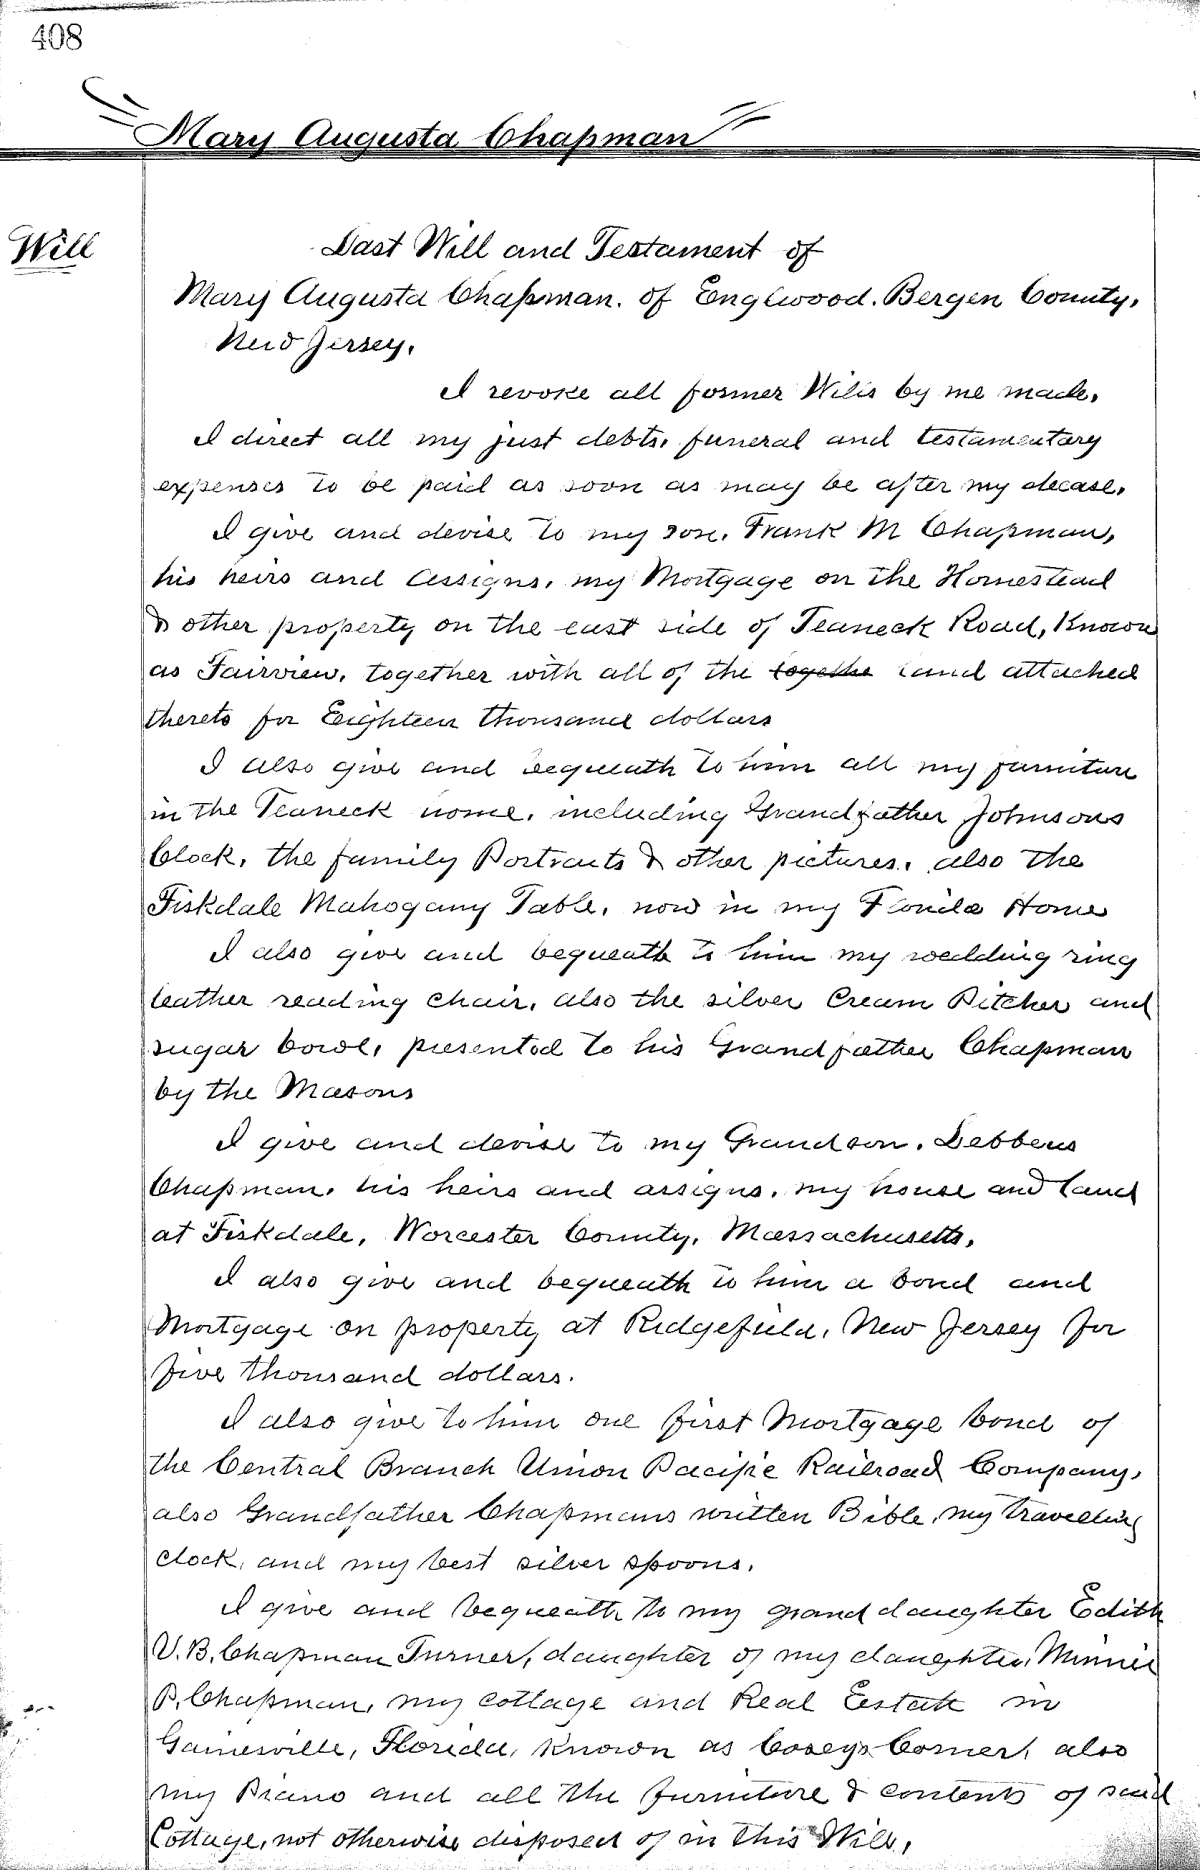 408
Mary Augusta Chapman
Will
Last Will and Testament of
Mary Augusta Chapman. of Englwood. Bergen County,
New Jersey.
I revoke all former Wills by me made.
I direct all my just debts, funeral and testamentary
expenses to be paid as soon as may be after my decase.
I give and devise to my son. Frank M Chapman,
his heirs and assigns. my Mortgage on the Homestead
& other property on the east side of Teaneck Road, Known
as Fairview. together with all of the togethe land attached
thereto for Eighteen thousand dollars
I also give and bequeath to him all my furniture
in the Teaneck home. including Grandfather Johnsons
Clock. the family Portraits & other pictures. also the
Fiskdale Mahogany Table. now in my Florida Home
I also give and bequeath to him my wedding ring
leather reading chair. also the silver Cream Pitcher and
sugar bowl, presented to his Grandfather Chapman
by the Masons
I give and devise to my Grandson. Debbens
Chapman. his heirs and assigns. my house and land
at Fiskdale, Worcester County. Massachusetts.
I also give and bequeath to him a bond and
Mortgage on property at Ridgefield, New Jersey for
five thousand dollars.
I also give to him one first Mortgage bond of
the Central Branch Union Pacific Railroad Company.
also Grandfather Chapmans written Bible, my travelling
clock, and my best silver spoons.
I give and bequeath to my granddaughter Edith
V.B. Chapman Turner, daughter of my daughter, Minnie
P. Chapman, my cottage and Real Eestate in
Gainesville, Florida, known as Coseys Corner, also
my Piano and all the furniture & contents of said
Cottage, not otherwise disposed of in this Will,